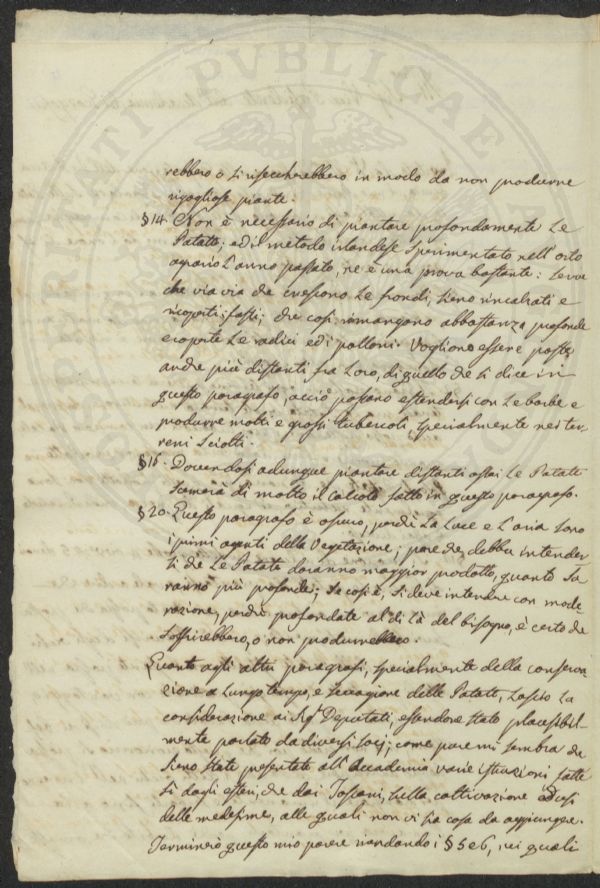 rebbero o si risecherebbero in modo da non produrre
rigogliose piante.
§ 14. Non è necessario di piantare profondamente le
Patate; ed il metodo irlandese sperimentato nell'orto
agrario l'anno passato, ne è una prova bastante:
che via via che crescono le frondi, sieno rincalzati e
ricoperti i fusti; che così rimangono abbastanza profonde
e coperte le radici ed i polloni. Vogliono essere poste
anche più distanti fra loro, di quello che si dice in
questo paragrafo, acciò possano estendersi con le barbe e
produrre molti e grossi tubercoli, specialmente nei ter-
reni sciolti.
§ 16. Dovendosi adunque piantare distanti assai le Patate
scemerà di molto il calcolo fatto in questo paragrafo.
§ 20. Questo paragrafo è oscuro, perchè la luce e l'aria sono
i primi agenti della Vegetazione; pare che debba intender-
si che le Patate daranno maggior prodotto, quanto sa
ranno più profonde; se così è, si deve intendere con mode-
razione, perchè profondate al di là del bisogno, è certo che
soffrirebbero, o non produrrebbero.
Quanto agli altri paragrafi, specialmente della conserva-
zione a lungo tempo, e delle Patate, lascio la
considerazione ai Sigri. Deputati, essendone stato plausibil-
mente parlato da diversi socj; come pare mi sembra che
sieno state presentate all'Accademia varie istruzioni fatte
sì dagli esteri, che dai Toscani, sulla coltivazione ed usi
delle medesime, alle quali non vi ha cosa da aggiungere.
Terminerò questo mio parere riandando i § 5 e 6, nei quali
PVBLICAE
PROSPERITATI